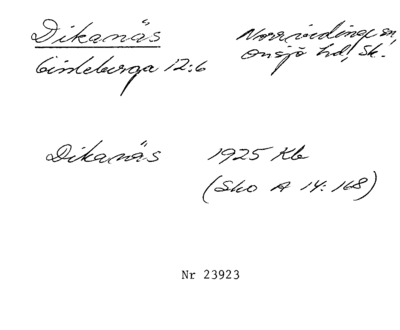 Dikanäs Norrvidinge sn,
Onsjö hd, Sk.
Gissleberga 12:6
Dikanäs 1925 Kb
(Sko A 14:168)
Nr 23923